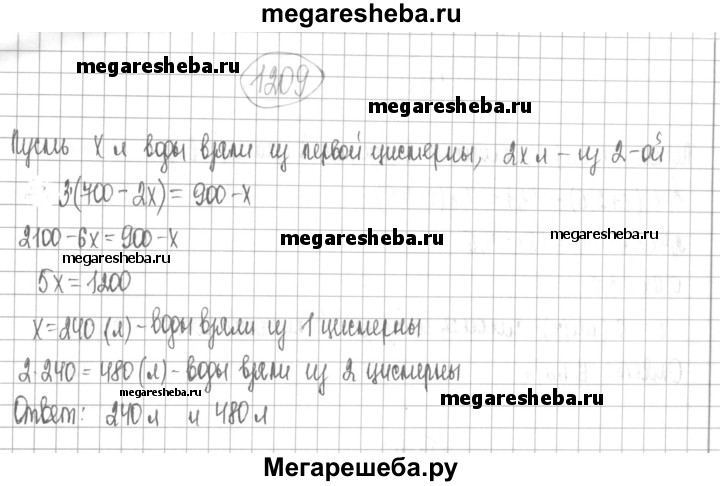 megaresheba.ru
megaresheba.ru
1209
megaresheba.ru
Пусть х л воды взяли из первой цистерны, 2х л – из 2-ой
3(700 - 2х) = 900 - х
2100 - 6х = 900 - х
megaresheba.ru
megaresheba.ru
megaresheba.ru
5х = 1200
х = 240 (л) - воды взяли из 1 цистерны
2·240 = 480 (л) - воды взяли из 2 цистерны
megaresheba.ru
megaresheba.ru
Ответ: 240 л и 480 л
Мегарешеба.ру